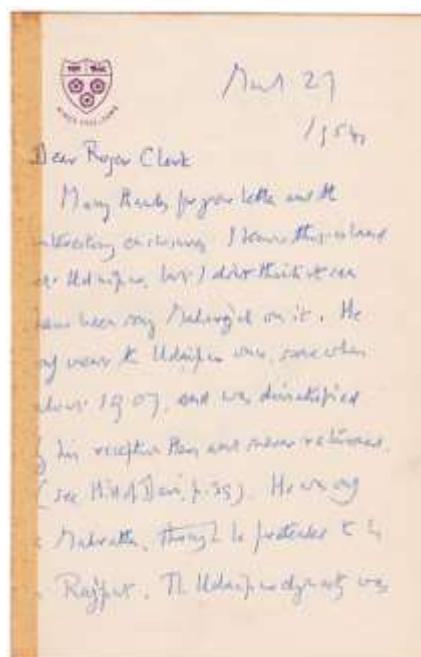 March 27
1954
Dear Roger Clark
Many thanks for your letter and the
interesting enclosures. I know the island
at Udaipur, but I don't think it can
have been my Maharajah on it. He
only went to Udaipur once, somewhere
about 1907, and was dissatisfied
by his reception there and never returned.
(see Hill of Devi, p. 39). He was only
a Mahratta, though he pretended to be
a Rajput. The Udaipur dynasty was